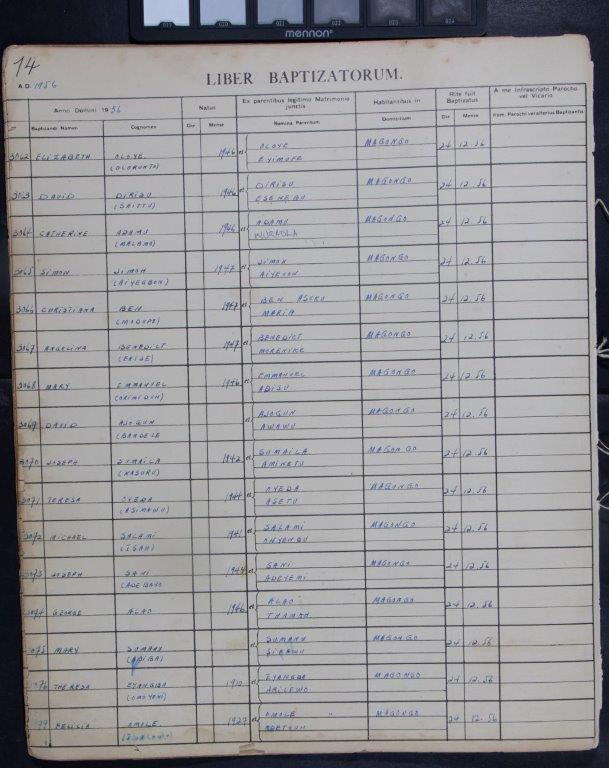 mennon
14
LIBER BAPTIZATORUM.
A.D. 1956
Anno Domini 1956 Natus Ex parentibus legitimo Matrimonio junctis Habitantibus in Rite fuit Baptizatus A me Infrascripto Parocho vel Vicario
Baptizandi Nomen Cognomen Die Mense Nomina Parentum Domicilium Die Mense Nom. Parochi vel alterius Baptizantis
3062 ELIZABETH OLOYE 1946 et OLOYE MAGONGO 24 12.56
(OLORUNTO) EYIMOFE
3063 DAVID DIRISU 1946 et DIRISU MAGONGO 24 12.56
(SAITTU) ESENEBU
3064 CATHERINE ADAMU 1946 et ADAMU MAGONGO 24 12.56
(MALOMO) WURAOLA
3065 SIMON JIMOH 1947 et JIMOH MAGONGO 24 12.56
(AIYEGBON) AIYEDUN
3066 CHRISTIANA BEN 1947 et BEN ASEKU MAGONGO 24 12.56
(MODUPE) MARIA
3067 ANGELINA BENEDICT 1947 et BENEDICT MAGONGO 24 12.56
(ENISE) MORENIKE
3068 MARY EMMANUEL 1946 et EMMANUEL MAGONGO 24 12.56
ADISU
3069 DAVID AJOGUN et AJOGUN MAGONGO 24 12.56
(BANDELE AWAWU
3070 JOSEPH SUMAILA 1942 et SUMAILA MAGONGO 24 12.56
(KASUMU) AMINETU
3071 TERESA OYEDA 1944 et OYEDA MAGONGO 24 12.56
(ASIMAWU) ASETU
3072 MICHAEL SALAMI 1941 et SALAMI MAGONGO 24 12.56
(ISAH) ONYENBU
3073 JOSEPH SANI 1944 et SANI MAGONGO 24 12.56
(ADEBAYO ADEYEMI
3074 GEORGE ALAO 1946 et ALAO MAGONGO 24 12.56
3075 MARY SUMANU et SUMANU MAGONGO 24 12.56
SIKAWU
3076 THERESA EYANGBA 1910 et EYANGBA MAGONGO 24 12.56
(OMOYENI) ARILEWO
FELICIA OMOLE 1927 et OMOLE " MAGONGO 24 12.56
ADETOUN